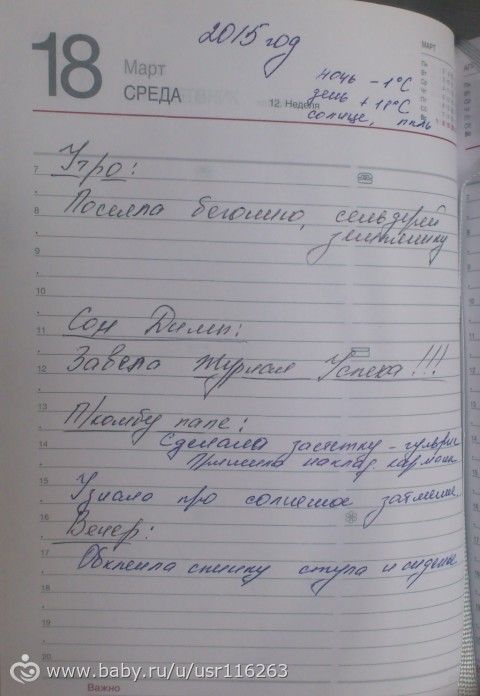 2015 год
18
Март
СРЕДА
12. Неделя
МАРТ
ночь -1°C
день +11°C
солнце, пыль
Утро:
7
8 Посеяла бегонию, сельдерей
землянику
9
10
11 Сон Димы:
12 Завела Журнал Успеха!!!
13 П/комбу папе:
14 Сделала застежку - гульфик
Пришила наклад карман
15 Узнала про солнечное затмение.
16 Вечер:
17 Обклеила спинку стула и сиденье
18
19
20
Важно
www.baby.ru/u/usr116263